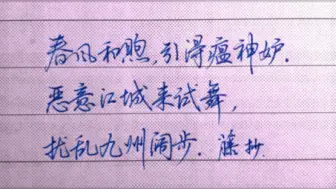 春风和煦,引得瘟神妒.
恶意江城来试舞,
扰乱九州阔步. 藤抄